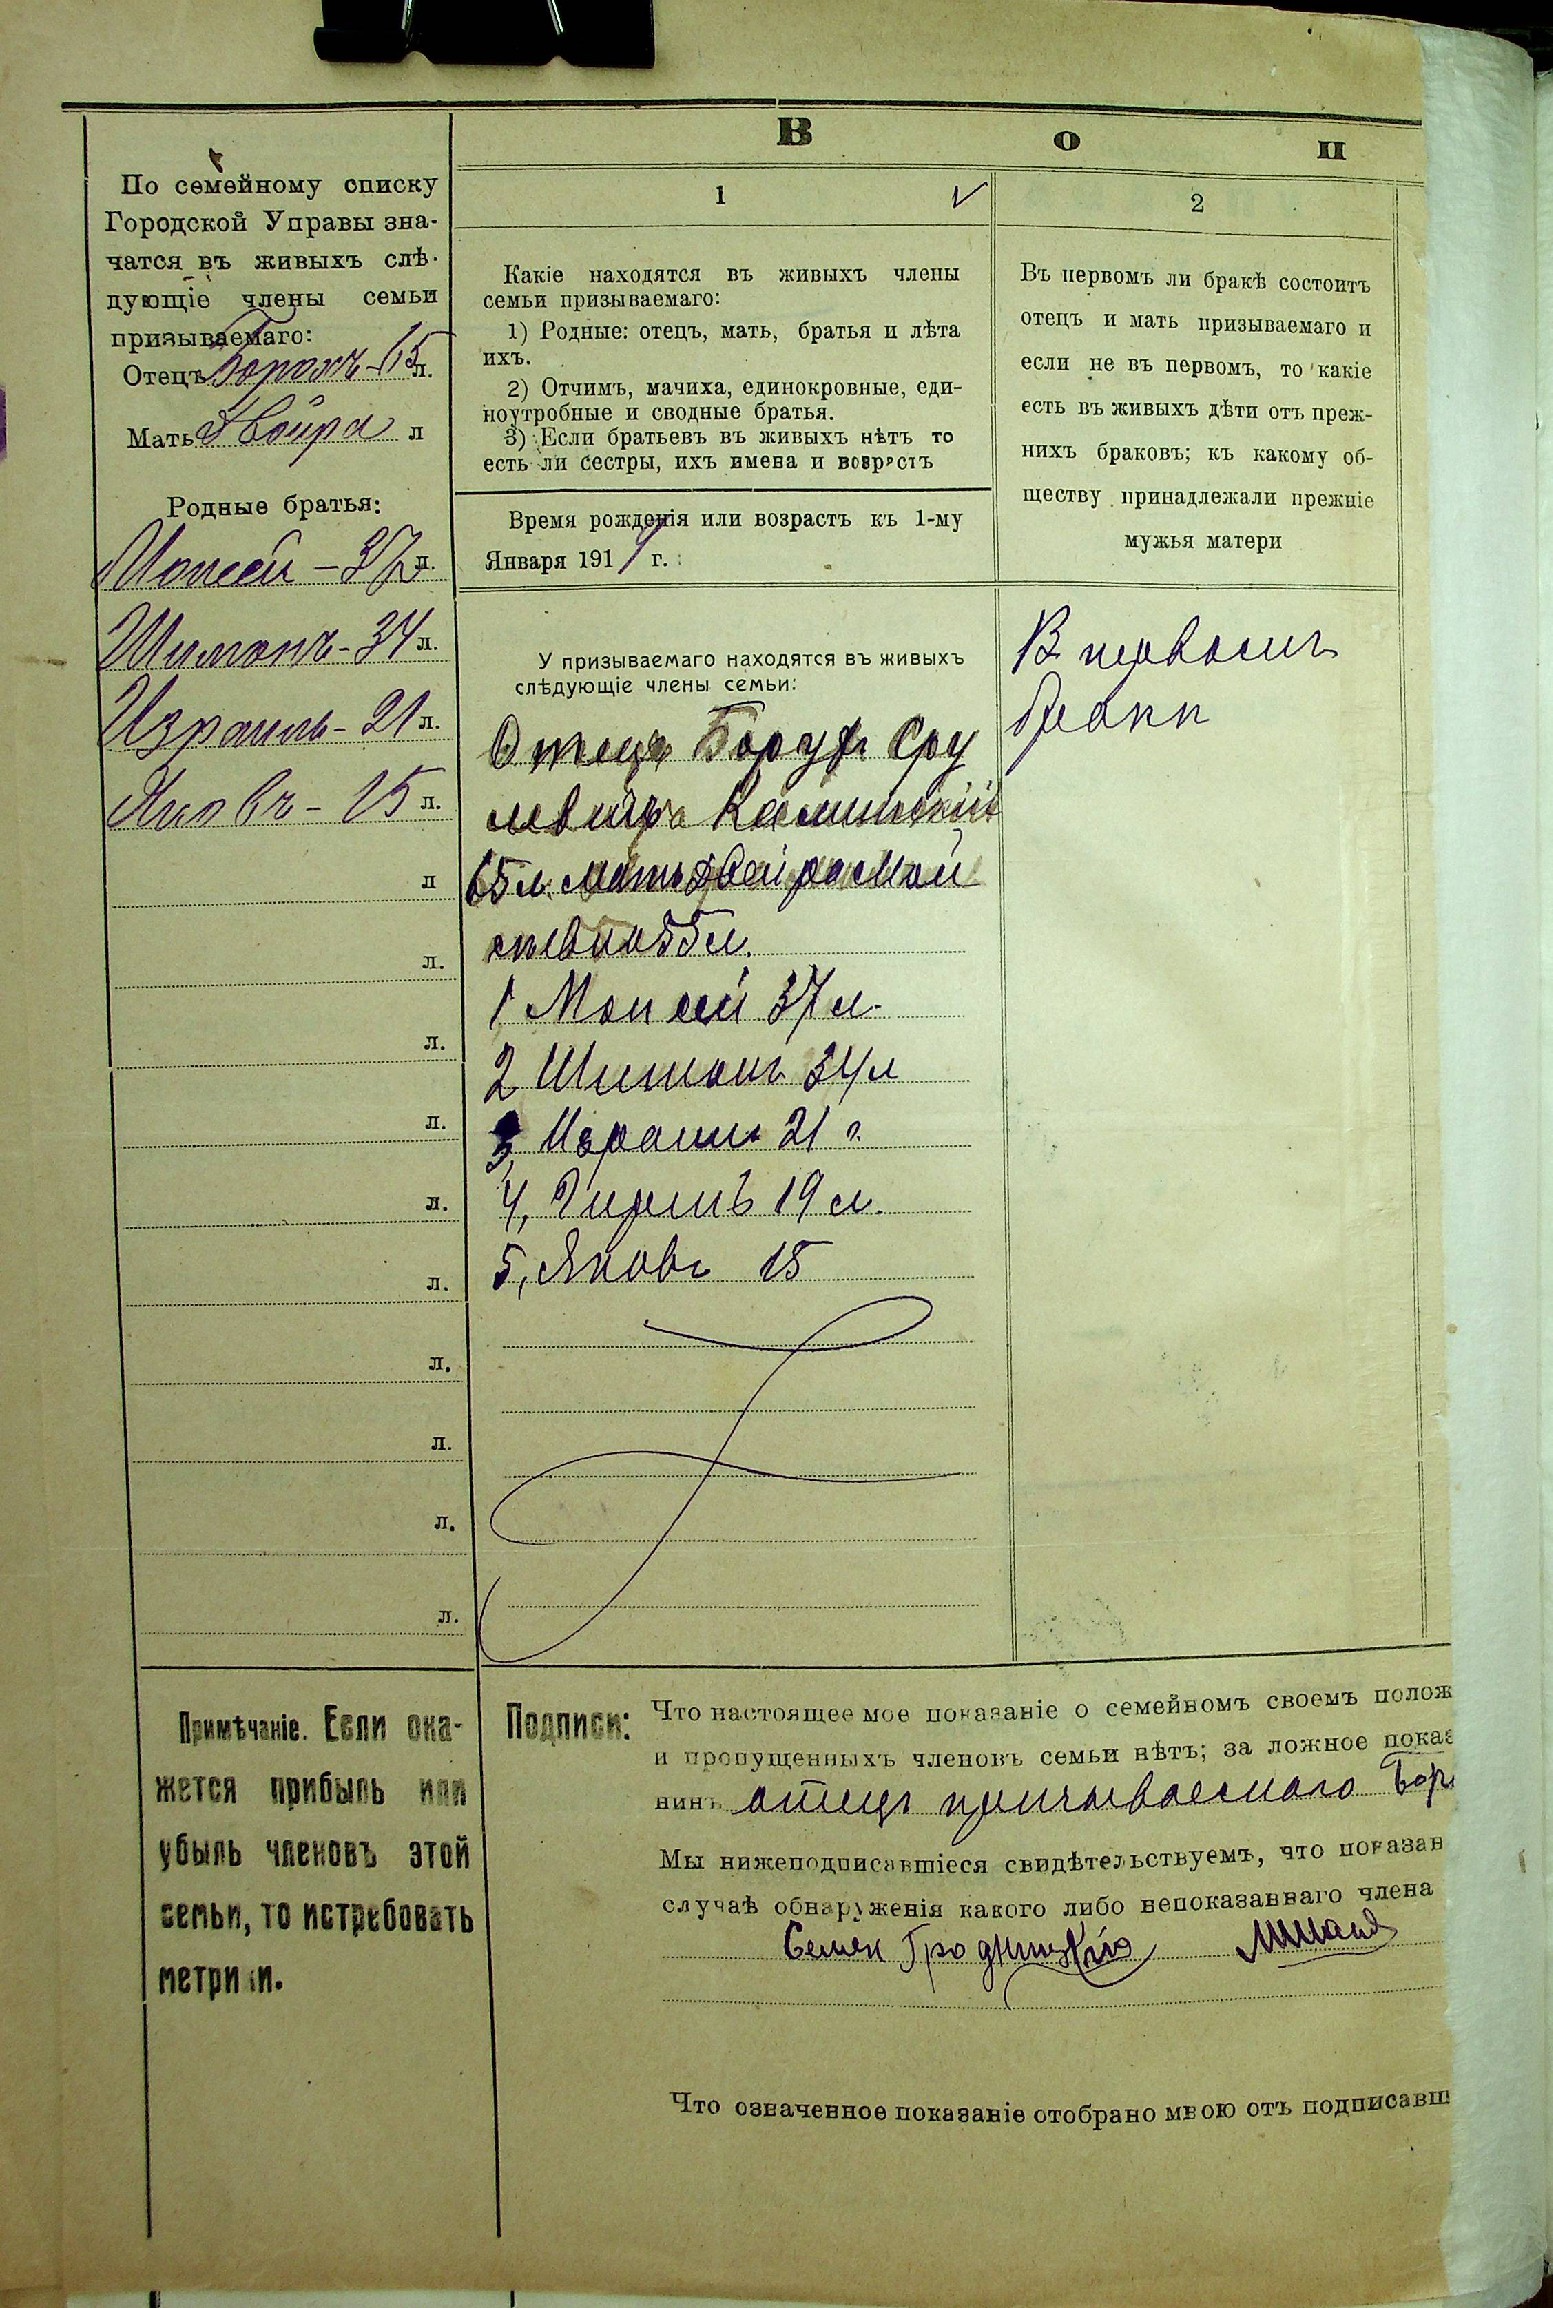 По семейному списку
Городской Управы зна-
чатся въ живыхъ слѣ-
дующіе члены семьи
призываемаго:
Отецъ Борохъ - 65 л.
Мать Двойра л
Родные братья:
Мовсей - 37 л.
Шимонъ - 34 л.
Израиль - 21 л.
Яковъ - 15 л.
л
л.
л.
л.
л.
л.
л.
л.
л.
л.
Примѣчаніе. Если ока-
жется прибыль или
убыль членовъ этой
семьи, то истребовать
метрики.
В о п
1
Какіе находятся въ живыхъ члены
семьи призываемаго:
1) Родные: отецъ, мать, братья и лѣта
ихъ.
2) Отчимъ, мачиха, единокровные, еди-
ноутробные и сводные братья.
3) Если братьевъ въ живыхъ нѣтъ то
есть ли сестры, ихъ имена и возрастъ
Время рожденія или возрастъ къ 1-му
Января 1914 г.
У призываемаго находятся въ живыхъ
слѣдующіе члены семьи:
Отецъ Борух Сру
левичъ
65 л. мать Двейра Мов
1 Мовсей 37 л.
2 Шимонъ 34 л
3, Израиль 21 г.
4, Гиршъ 19 л.
5, Яковъ 15
2
Въ первомъ ли бракѣ состоитъ
отецъ и мать призываемаго и
если не въ первомъ, то какіе
есть въ живыхъ дѣти отъ преж-
нихъ браковъ; къ какому об-
ществу принадлежали прежніе
мужья матери
В первомъ
бракѣ
Подписи:
Что настоящее мое показаніе о семейномъ своемъ полож
и пропущенныхъ членовъ семьи нѣтъ; за ложное показ
нинъ отецъ призываемаго Бор
Мы нижеподписавшіеся свидѣтельствуемъ, что показан
случаѣ обнаруженія какого либо непоказаннаго члена
Семен Гродницкій
Что означенное показаніе отобрано мною отъ подписавш